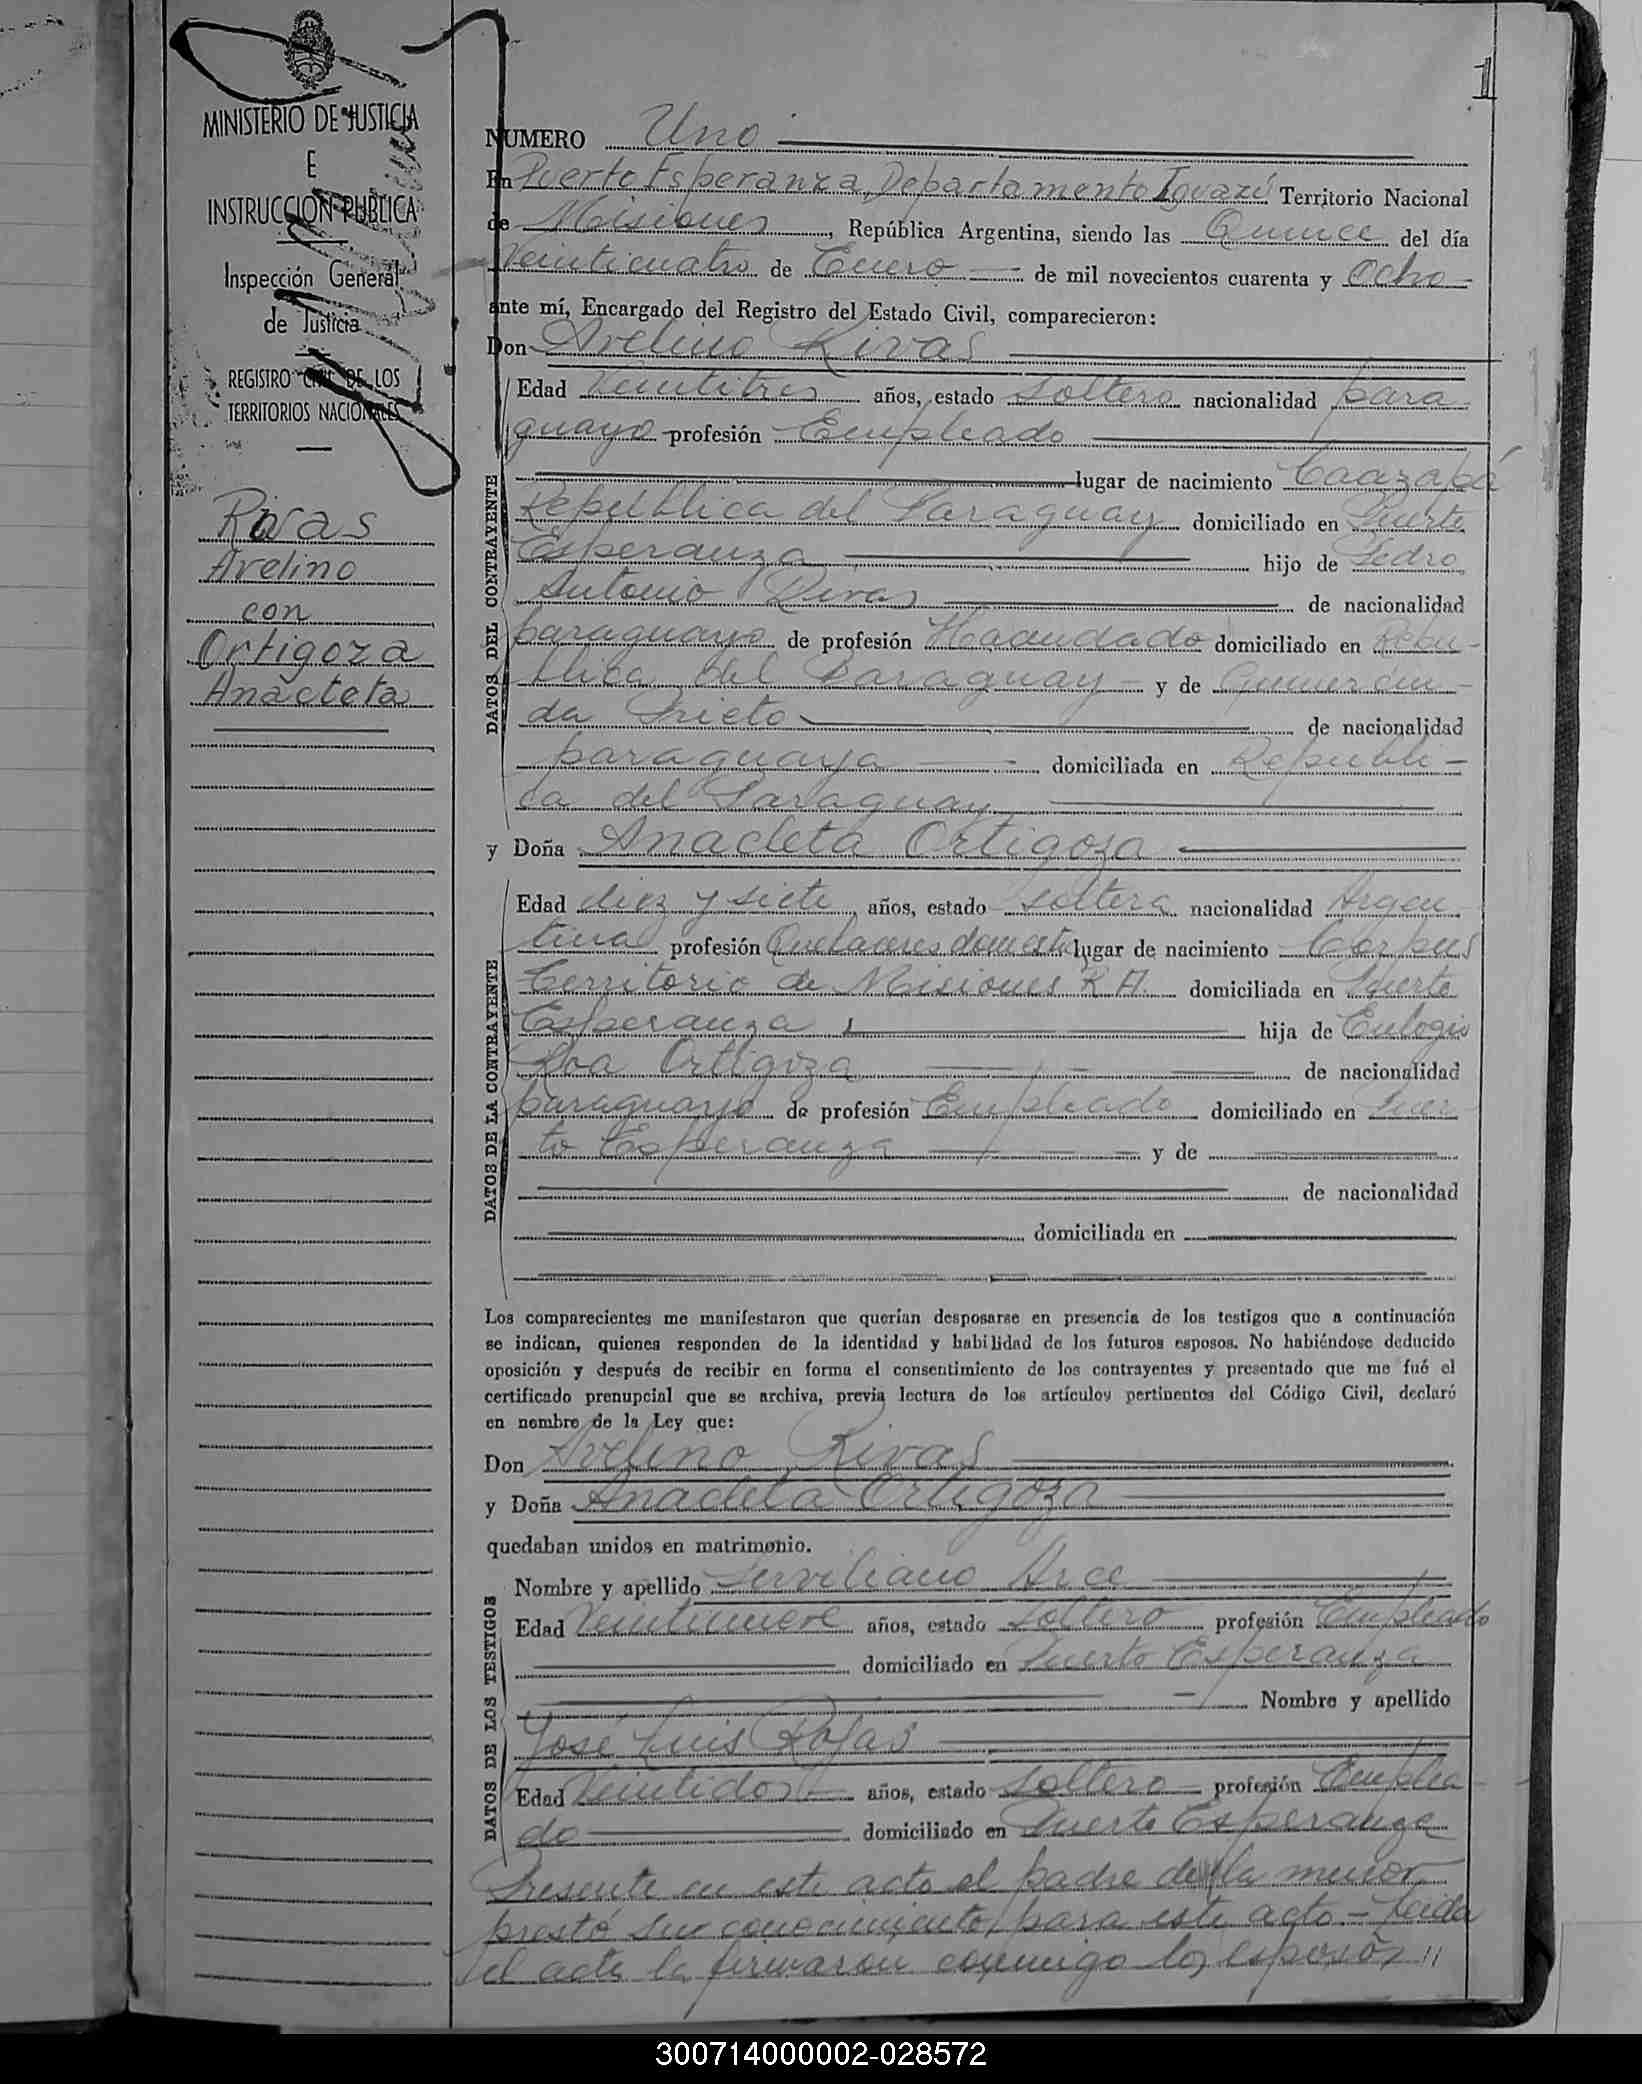 1
MINISTERIO DE JUSTICIA
E
INSTRUCCION PUBLICA
Inspección General
de Justicia
REGISTRO CIVIL DE LOS
TERRITORIOS NACIONALES
Rivas
Avelino
con
Ortigoza
Anacleta
NUMERO Uno
En Puerto Esperanza, Departamento Iguazú Territorio Nacional
de Misiones, República Argentina, siendo las Quince del día
Veinticuatro de Enero de mil novecientos cuarenta y Ocho
ante mí, Encargado del Registro del Estado Civil, comparecieron:
Don Avelino Rivas
DATOS DEL CONTRAYENTE
Edad Veintitres años, estado Soltero nacionalidad para
guayo profesión Empleado
lugar de nacimiento Caazapá
Republica del Paraguay domiciliado en Puerto
Esperanza hijo de Pedro
Antonio Rivas de nacionalidad
paraguayo de profesión Hacendado domiciliado en Repu-
blica del Paraguay y de Gumercin-
da Prieto de nacionalidad
paraguaya domiciliada en Republi-
ca del Paraguay
y Doña Anacleta Ortigoza
DATOS DE LA CONTRAYENTE
Edad diez y siete años, estado Soltera nacionalidad Argen
tina profesión Quehaceres domest. lugar de nacimiento Corpus
Territorio de Misiones R.A. domiciliada en Puerto
Esperanza hija de Eulogio
Ortigoza de nacionalidad
paraguayo de profesión Empleado domiciliado en Puer
to Esperanza y de
de nacionalidad
domiciliada en
Los comparecientes me manifestaron que querían desposarse en presencia de los testigos que a continuación
se indican, quienes responden de la identidad y habilidad de los futuros esposos. No habiéndose deducido
oposición y después de recibir en forma el consentimiento de los contrayentes y presentado que me fué el
certificado prenupcial que se archiva, previa lectura de los artículos pertinentes del Código Civil, declaró
en nombre de la Ley que:
Don Avelino Rivas
y Doña Anacleta Ortigoza
quedaban unidos en matrimonio.
DATOS DE LOS TESTIGOS
Nombre y apellido Serviliano Arce
Edad Veintinueve años, estado Soltero profesión Empleado
domiciliado en Puerto Esperanza
Nombre y apellido
José Luis Rojas
Edad Veintidos años, estado Soltero profesión Emplea
do domiciliado en Puerto Esperanza
Presente en este acto el padre de la menor
prestó su conocimiento para este acto.- Leida
el acta la firmaron conmigo los esposos,
300714000002-028572